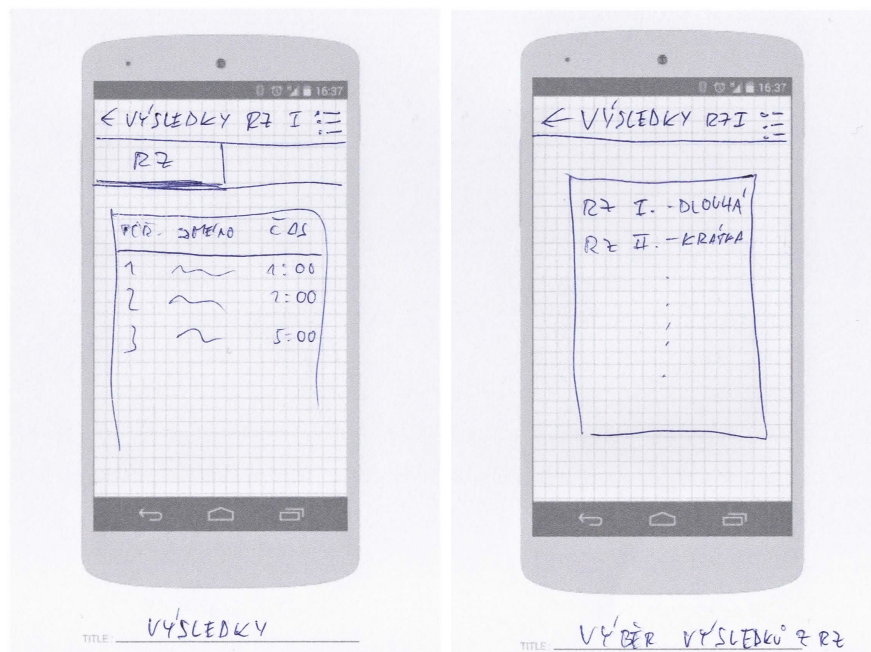 16:37
← VÝSLEDKY RZ I
RZ
POŘ. JMÉNO ČAS
1 1:00
2 2:00
3 5:00
TITLE: VÝSLEDKY
16:37
← VÝSLEDKY RZ I
RZ I. - DLOUHÁ
RZ II. - KRÁTKÁ
TITLE: VÝBĚR VÝSLEDKŮ Z RZ